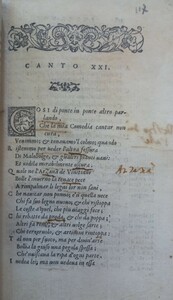 CANTO XXI.
COSI di ponte in ponte altro par-
lando,
Che la mia Comedia cantar non
cura,
Venimmo; & tenevamo l colmo; quando
Ristemmo per veder l'altra fessura
Di Malebolge, & gli altri pianti vani:
Et vidila mirabilmente oscura.
Quale ne l'Arzanà de Vinitiani
Bolle l'inverno la tenace pece
A rimpalmar li legni lor non sani;
Che navicar non ponno; e'n quella vece
Chi fa suo legno nuovo, & chi ristoppa
Le coste a quel, che piu viaggi fece;
Chi ribatte da proda, & chi da poppa;
Altri fa remi, & altri volge sarte;
Chi terzeruolo, & artimon rintoppa;
Tal non per fuoco, ma per divina arte
Bollia la giuso una pegola spessa;
Che'nviscava la ripa d'ogni parte.
I vedea lei; ma non vedeva in essa